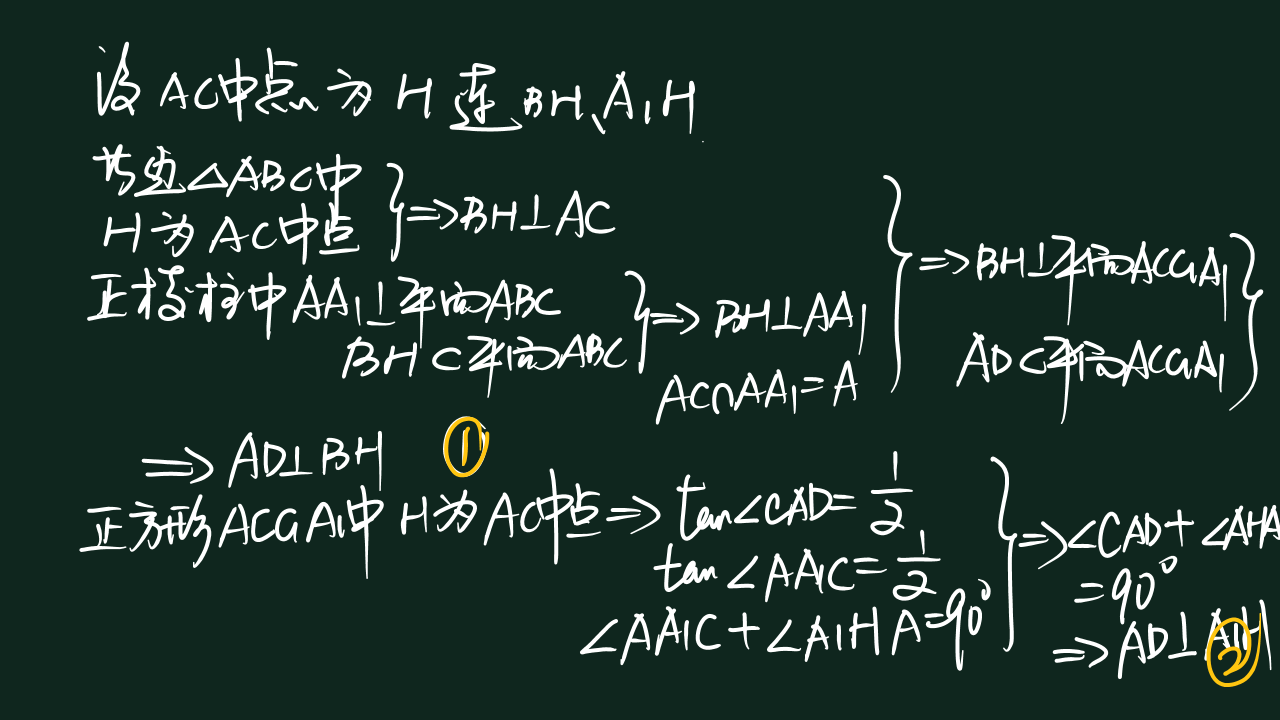 设AC中点为H 连BH、A₁H
等边△ABC中
H为AC中点 } ⇒BH⊥AC
正棱柱中AA₁⊥平面ABC
BH⊂平面ABC } ⇒ BH⊥AA₁
AC∩AA₁=A } ⇒BH⊥平面ACC₁A₁
AD⊂平面ACC₁A₁ }
⇒ AD⊥BH ①
正方形ACC₁A₁中 H为AC中点⇒ tan∠CAD=1/2
tan∠AA₁C=1/2
∠AA₁C+∠A₁HA=90° } ⇒∠CAD+∠A₁HA
=90°
⇒AD⊥A₁H ②